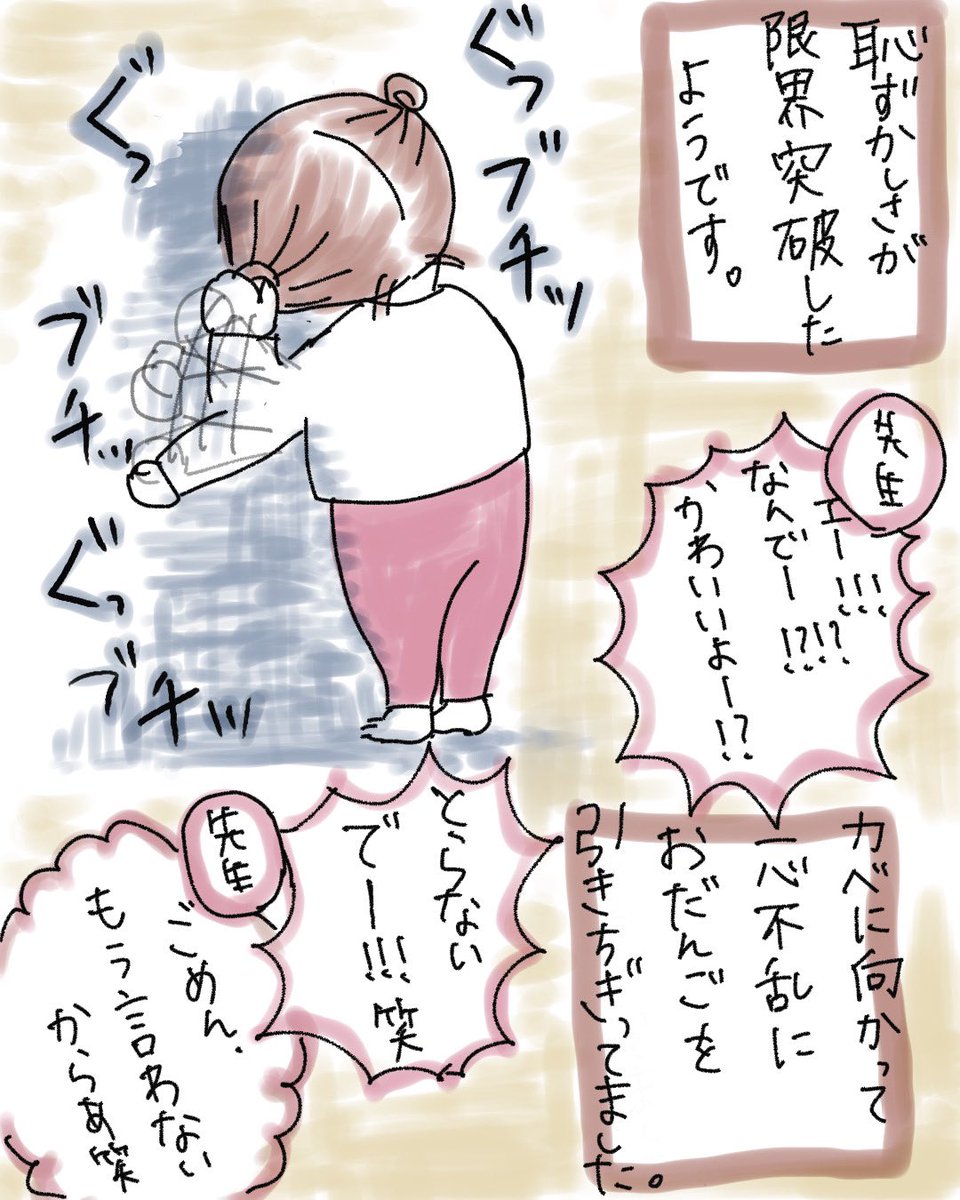 恥ずかしさが
限界突破した
ようです。
ぐっ
ブチッ
ぐっ
ブチッ
ぐっ
ブチッ
先生
エー!!!
なんでー!?!?
かわいいよー!?
カベに向かって
一心不乱に
おだんごを
引きちぎってました。
とらない
でー!!!笑
先生
ごめん、
もう言わない
からぁ笑